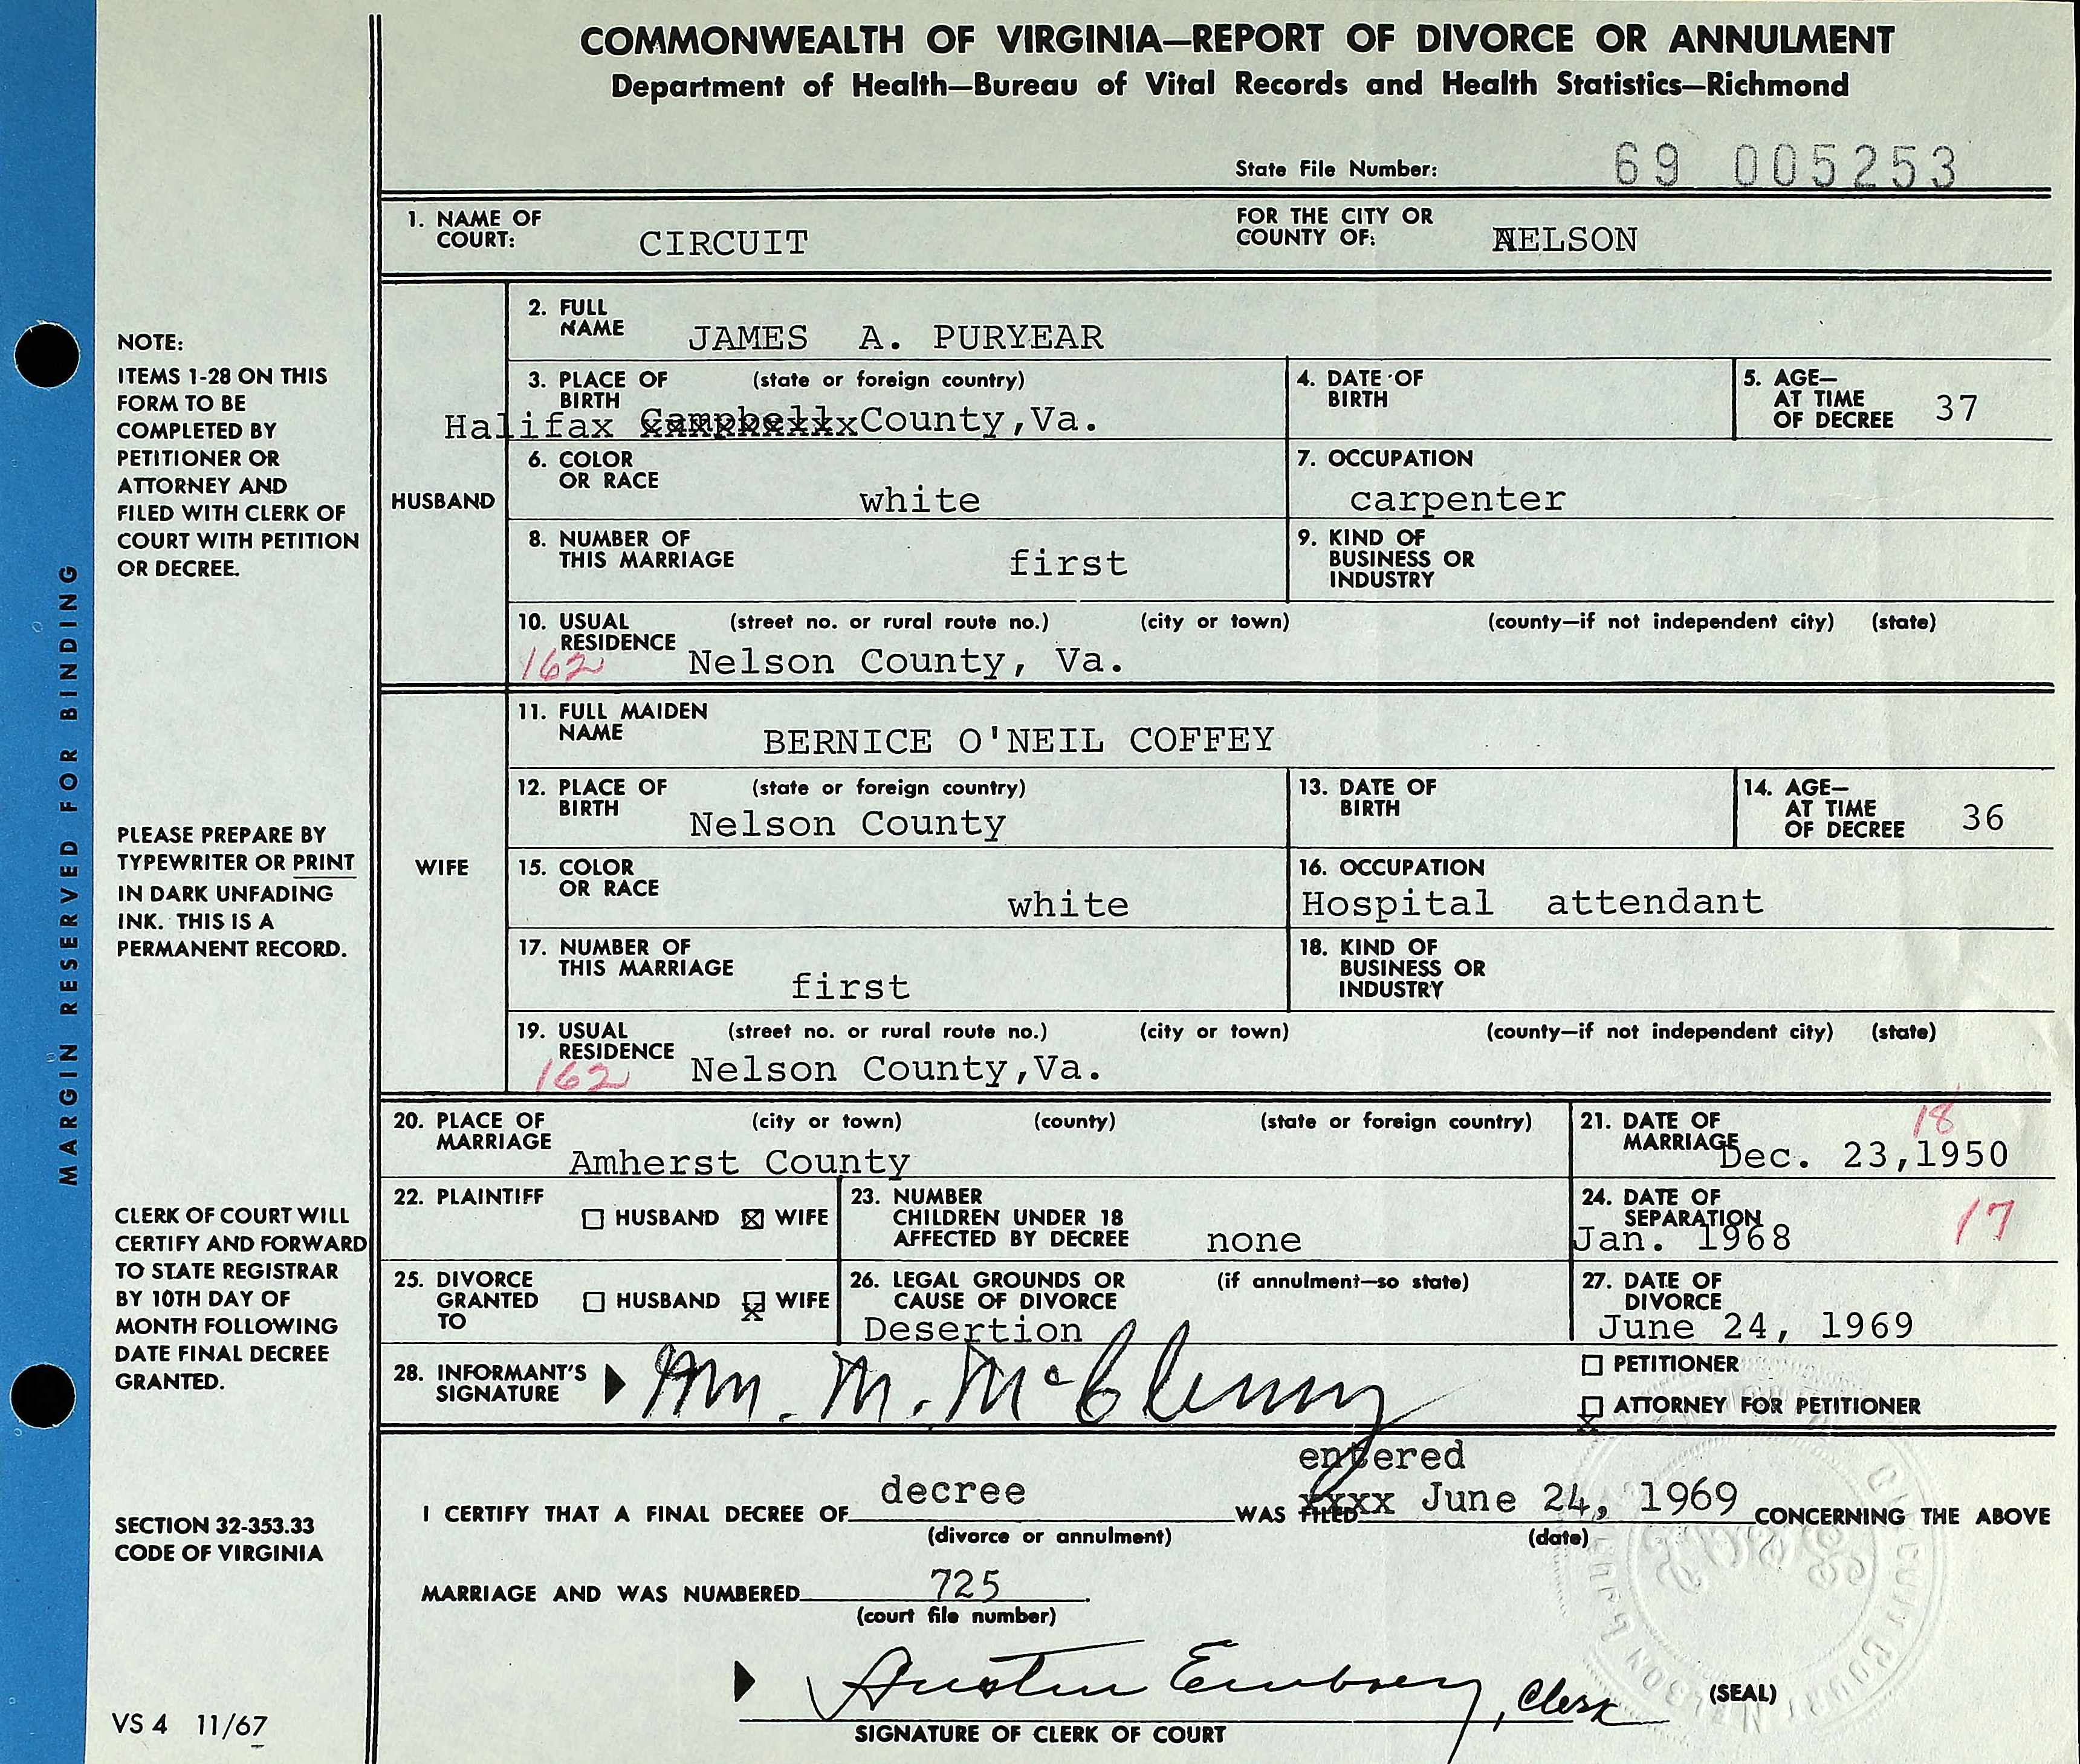 COMMONWEALTH OF VIRGINIA—REPORT OF DIVORCE OR ANNULMENT
Department of Health—Bureau of Vital Records and Health Statistics—Richmond
State File Number: 69 005253
1. NAME OF COURT: CIRCUIT FOR THE CITY OR COUNTY OF: NELSON
HUSBAND
2. FULL NAME JAMES A. PURYEAR
3. PLACE OF BIRTH (state or foreign country) Halifax Campbellx County,Va.
4. DATE OF BIRTH
5. AGE—AT TIME OF DECREE 37
6. COLOR OR RACE white
7. OCCUPATION carpenter
8. NUMBER OF THIS MARRIAGE first
9. KIND OF BUSINESS OR INDUSTRY
10. USUAL RESIDENCE (street no. or rural route no.) (city or town) (county—if not independent city) (state)
162 Nelson County, Va.
WIFE
11. FULL MAIDEN NAME BERNICE O'NEIL COFFEY
12. PLACE OF BIRTH (state or foreign country) Nelson County
13. DATE OF BIRTH
14. AGE—AT TIME OF DECREE 36
15. COLOR OR RACE white
16. OCCUPATION Hospital attendant
17. NUMBER OF THIS MARRIAGE first
18. KIND OF BUSINESS OR INDUSTRY
19. USUAL RESIDENCE (street no. or rural route no.) (city or town) (county—if not independent city) (state)
162 Nelson County,Va.
20. PLACE OF MARRIAGE (city or town) (county) (state or foreign country) Amherst County
21. DATE OF MARRIAGE Dec. 23,1950 18
22. PLAINTIFF HUSBAND ☒ WIFE
23. NUMBER CHILDREN UNDER 18 AFFECTED BY DECREE none
24. DATE OF SEPARATION Jan. 1968 17
25. DIVORCE GRANTED TO HUSBAND X WIFE
26. LEGAL GROUNDS OR CAUSE OF DIVORCE (if annulment—so state) Desertion
27. DATE OF DIVORCE June 24, 1969
28. INFORMANT'S SIGNATURE Wm. M. McClenny
PETITIONER
X ATTORNEY FOR PETITIONER
entered
I CERTIFY THAT A FINAL DECREE OF decree WAS FILED xxxx June 24, 1969 CONCERNING THE ABOVE
(divorce or annulment) (date)
MARRIAGE AND WAS NUMBERED 725.
(court file number)
Austin Embrey, Clerk (SEAL)
SIGNATURE OF CLERK OF COURT
CIRCUIT COURT NELSON
MARGIN RESERVED FOR BINDING
NOTE:
ITEMS 1-28 ON THIS
FORM TO BE
COMPLETED BY
PETITIONER OR
ATTORNEY AND
FILED WITH CLERK OF
COURT WITH PETITION
OR DECREE.
PLEASE PREPARE BY
TYPEWRITER OR PRINT
IN DARK UNFADING
INK. THIS IS A
PERMANENT RECORD.
CLERK OF COURT WILL
CERTIFY AND FORWARD
TO STATE REGISTRAR
BY 10TH DAY OF
MONTH FOLLOWING
DATE FINAL DECREE
GRANTED.
SECTION 32-353.33
CODE OF VIRGINIA
VS 4 11/67